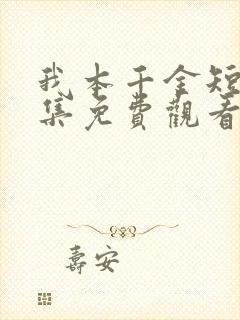 我本千金短
集免費觀看
壽安